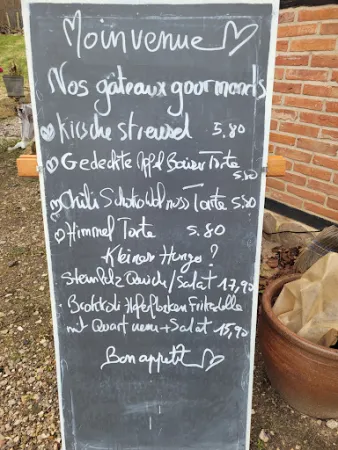 Moinvenue
Nos gâteaux gourmands
Kirsche streusel 5,80
Gedeckte Apfel Baiser Torte
5,80
Chili Schoko Walnuss Torte 5,80
Himmel Torte 5.80
Kleiner Hunger?
Steinpilz Quiche/Salat 17,90
Brokkoli Haferflocken Frikadelle
mit Quark + Salat 15,90
Bon appetit